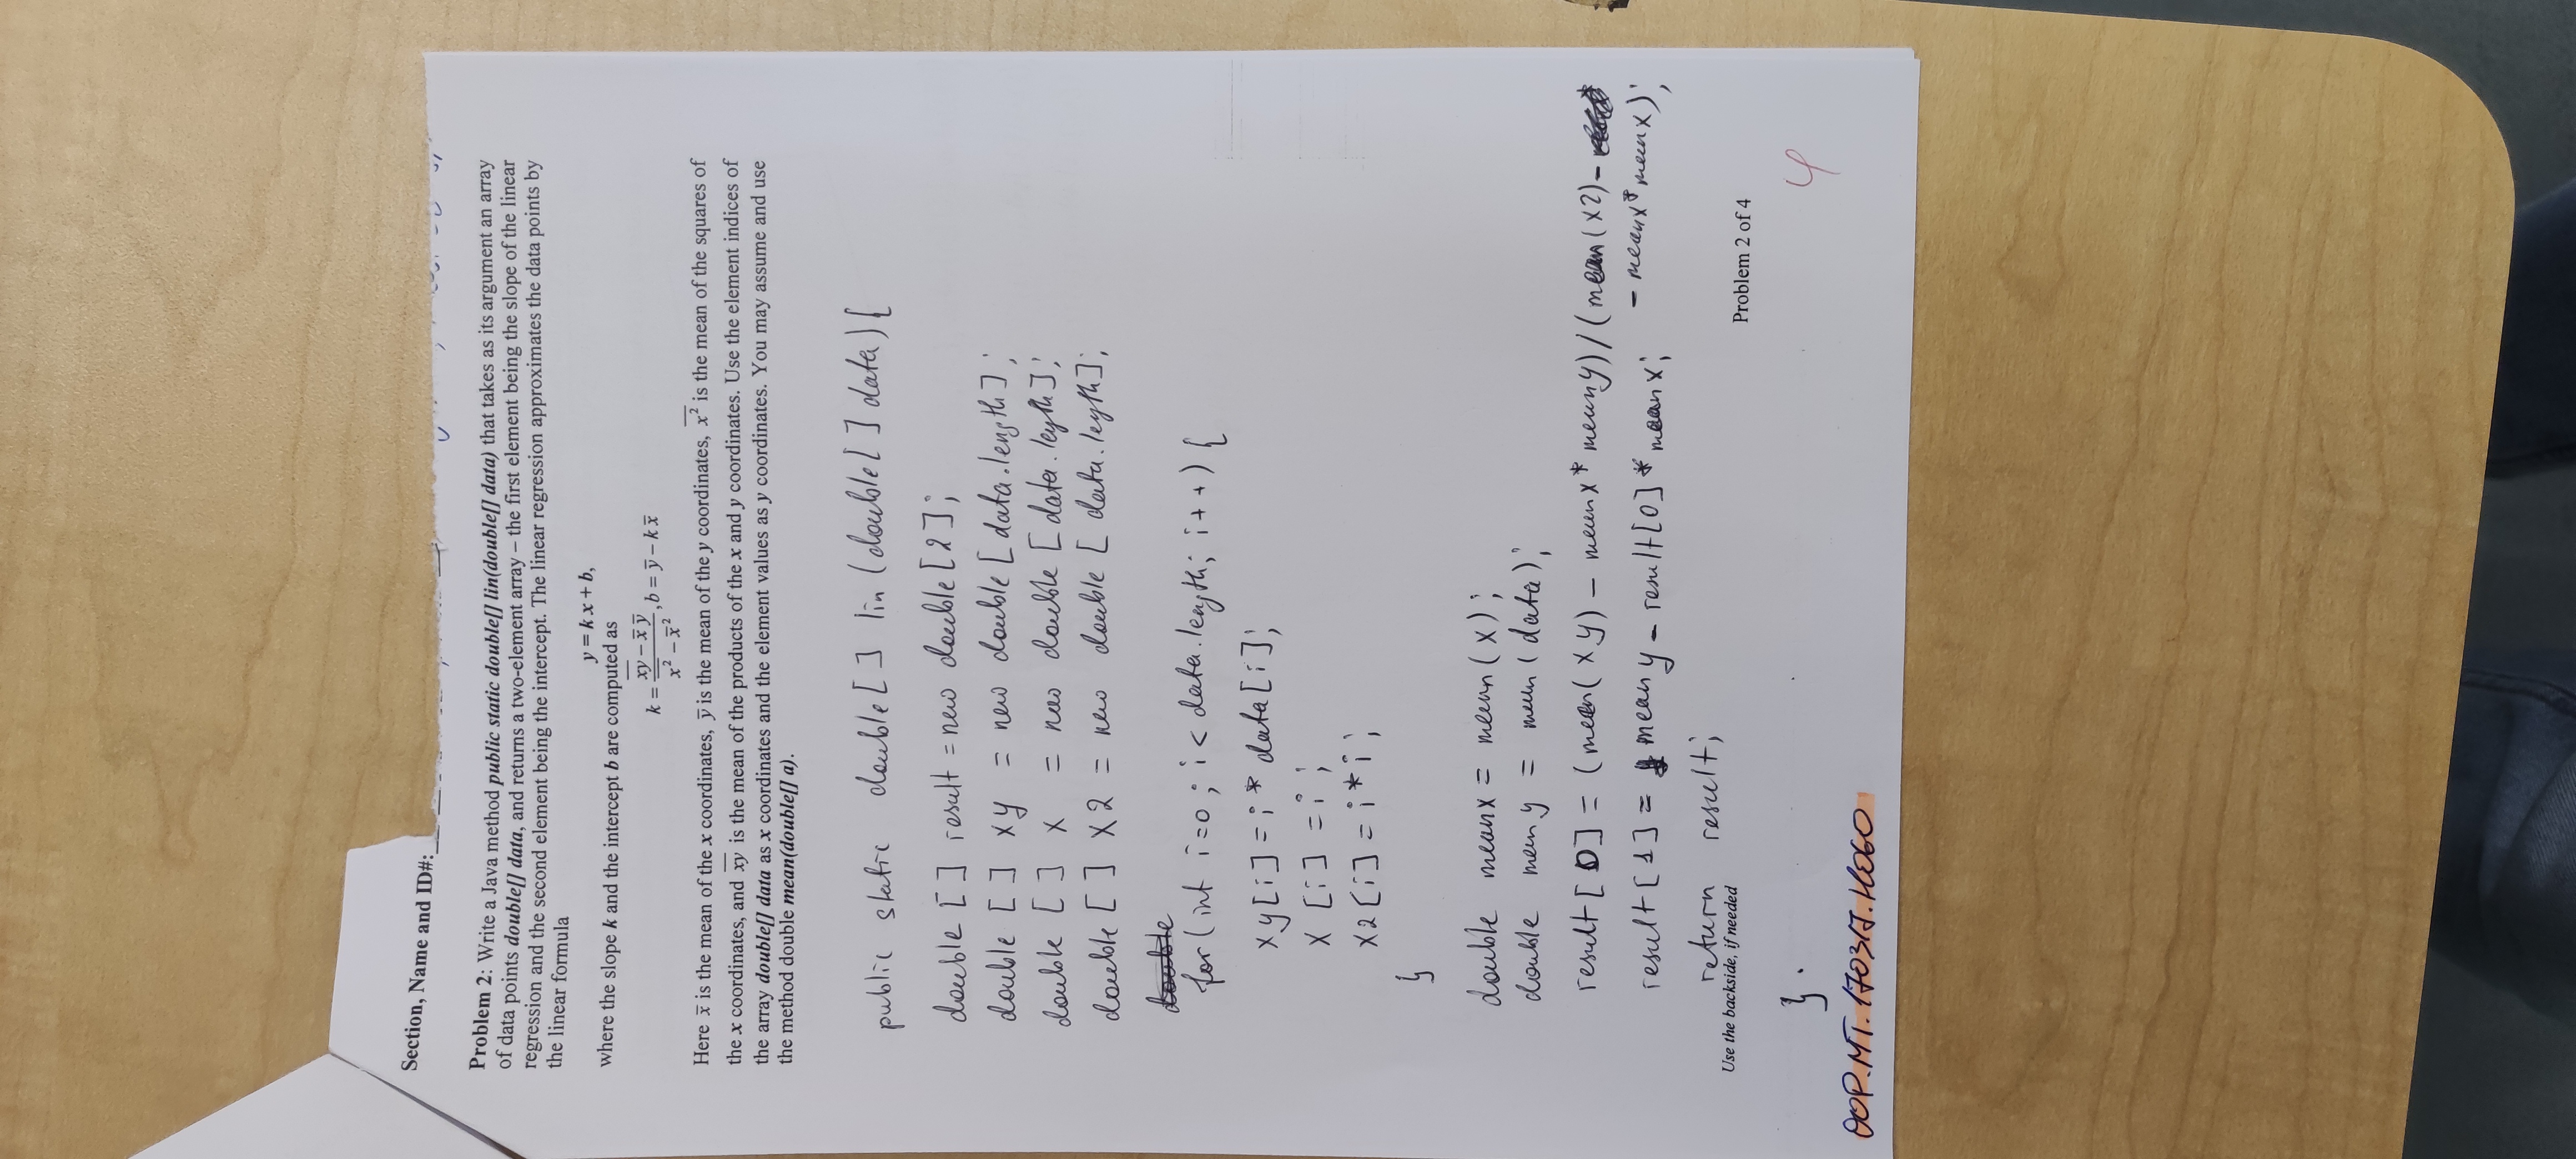 Section, Name and ID#:
Problem 2: Write a Java method public static double[] lin(double[] data) that takes as its argument an array
of data points double[] data, and returns a two-element array – the first element being the slope of the linear
regression and the second element being the intercept. The linear regression approximates the data points by
the linear formula
y = k x + b,
where the slope k and the intercept b are computed as
k = (x̅y̅ − x̅ y̅) / (x̅²̅ − x̅²), b = y̅ − k x̅
Here x̅ is the mean of the x coordinates, y̅ is the mean of the y coordinates, x̅²̅ is the mean of the squares of
the x coordinates, and x̅y̅ is the mean of the products of the x and y coordinates. Use the element indices of
the array double[] data as x coordinates and the element values as y coordinates. You may assume and use
the method double mean(double[] a).
public static double[] lin (double[] data){
double [] result = new double[2];
double [] xy = new double[data.length];
double [] x = new double[data.length];
double [] x2 = new double[data.length];
double
for (int i=0; i < data.length; i++) {
xy[i] = i * data[i];
x[i] = i;
x2[i] = i*i;
}
double meanx = mean(x);
double meany = mean(data);
result[0] = (mean(xy) - meanx * meany)/(mean(x2)-
- meanx*meanx);
result[1] = meany - result[0] * meanx;
return result;
Use the backside, if needed
Problem 2 of 4
}.
4
OOP.MT.170317.H060